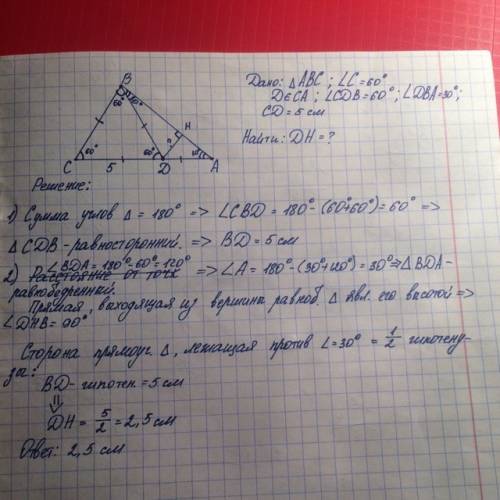 Дано: △ABC; ∠C=60°
D∈CA; ∠CDB=60°; ∠DBA=30°;
CD=5 см
Найти: DH=?
B
60° 30°
H
?
C 60° 5 60° D A
Решение:
1) Сумма углов △ = 180° => ∠CBD = 180°-(60°+60°)=60° =>
△CDB-равносторонний. => BD=5 см
∠BDA=180°-60°=120°
2) Расстояние от точк => ∠A=180°-(30°+120°)=30° => △BDA-
равнобедренный.
Прямая, выходящая из вершины равноб. △ явл. его высотой =>
∠DHB=90°
Сторона прямоуг. △, лежащая против ∠=30° = 1/2 гипотену-
зы:
BD-гипотен.=5 см
⇓
DH = 5/2 = 2,5 см
Ответ: 2,5 см